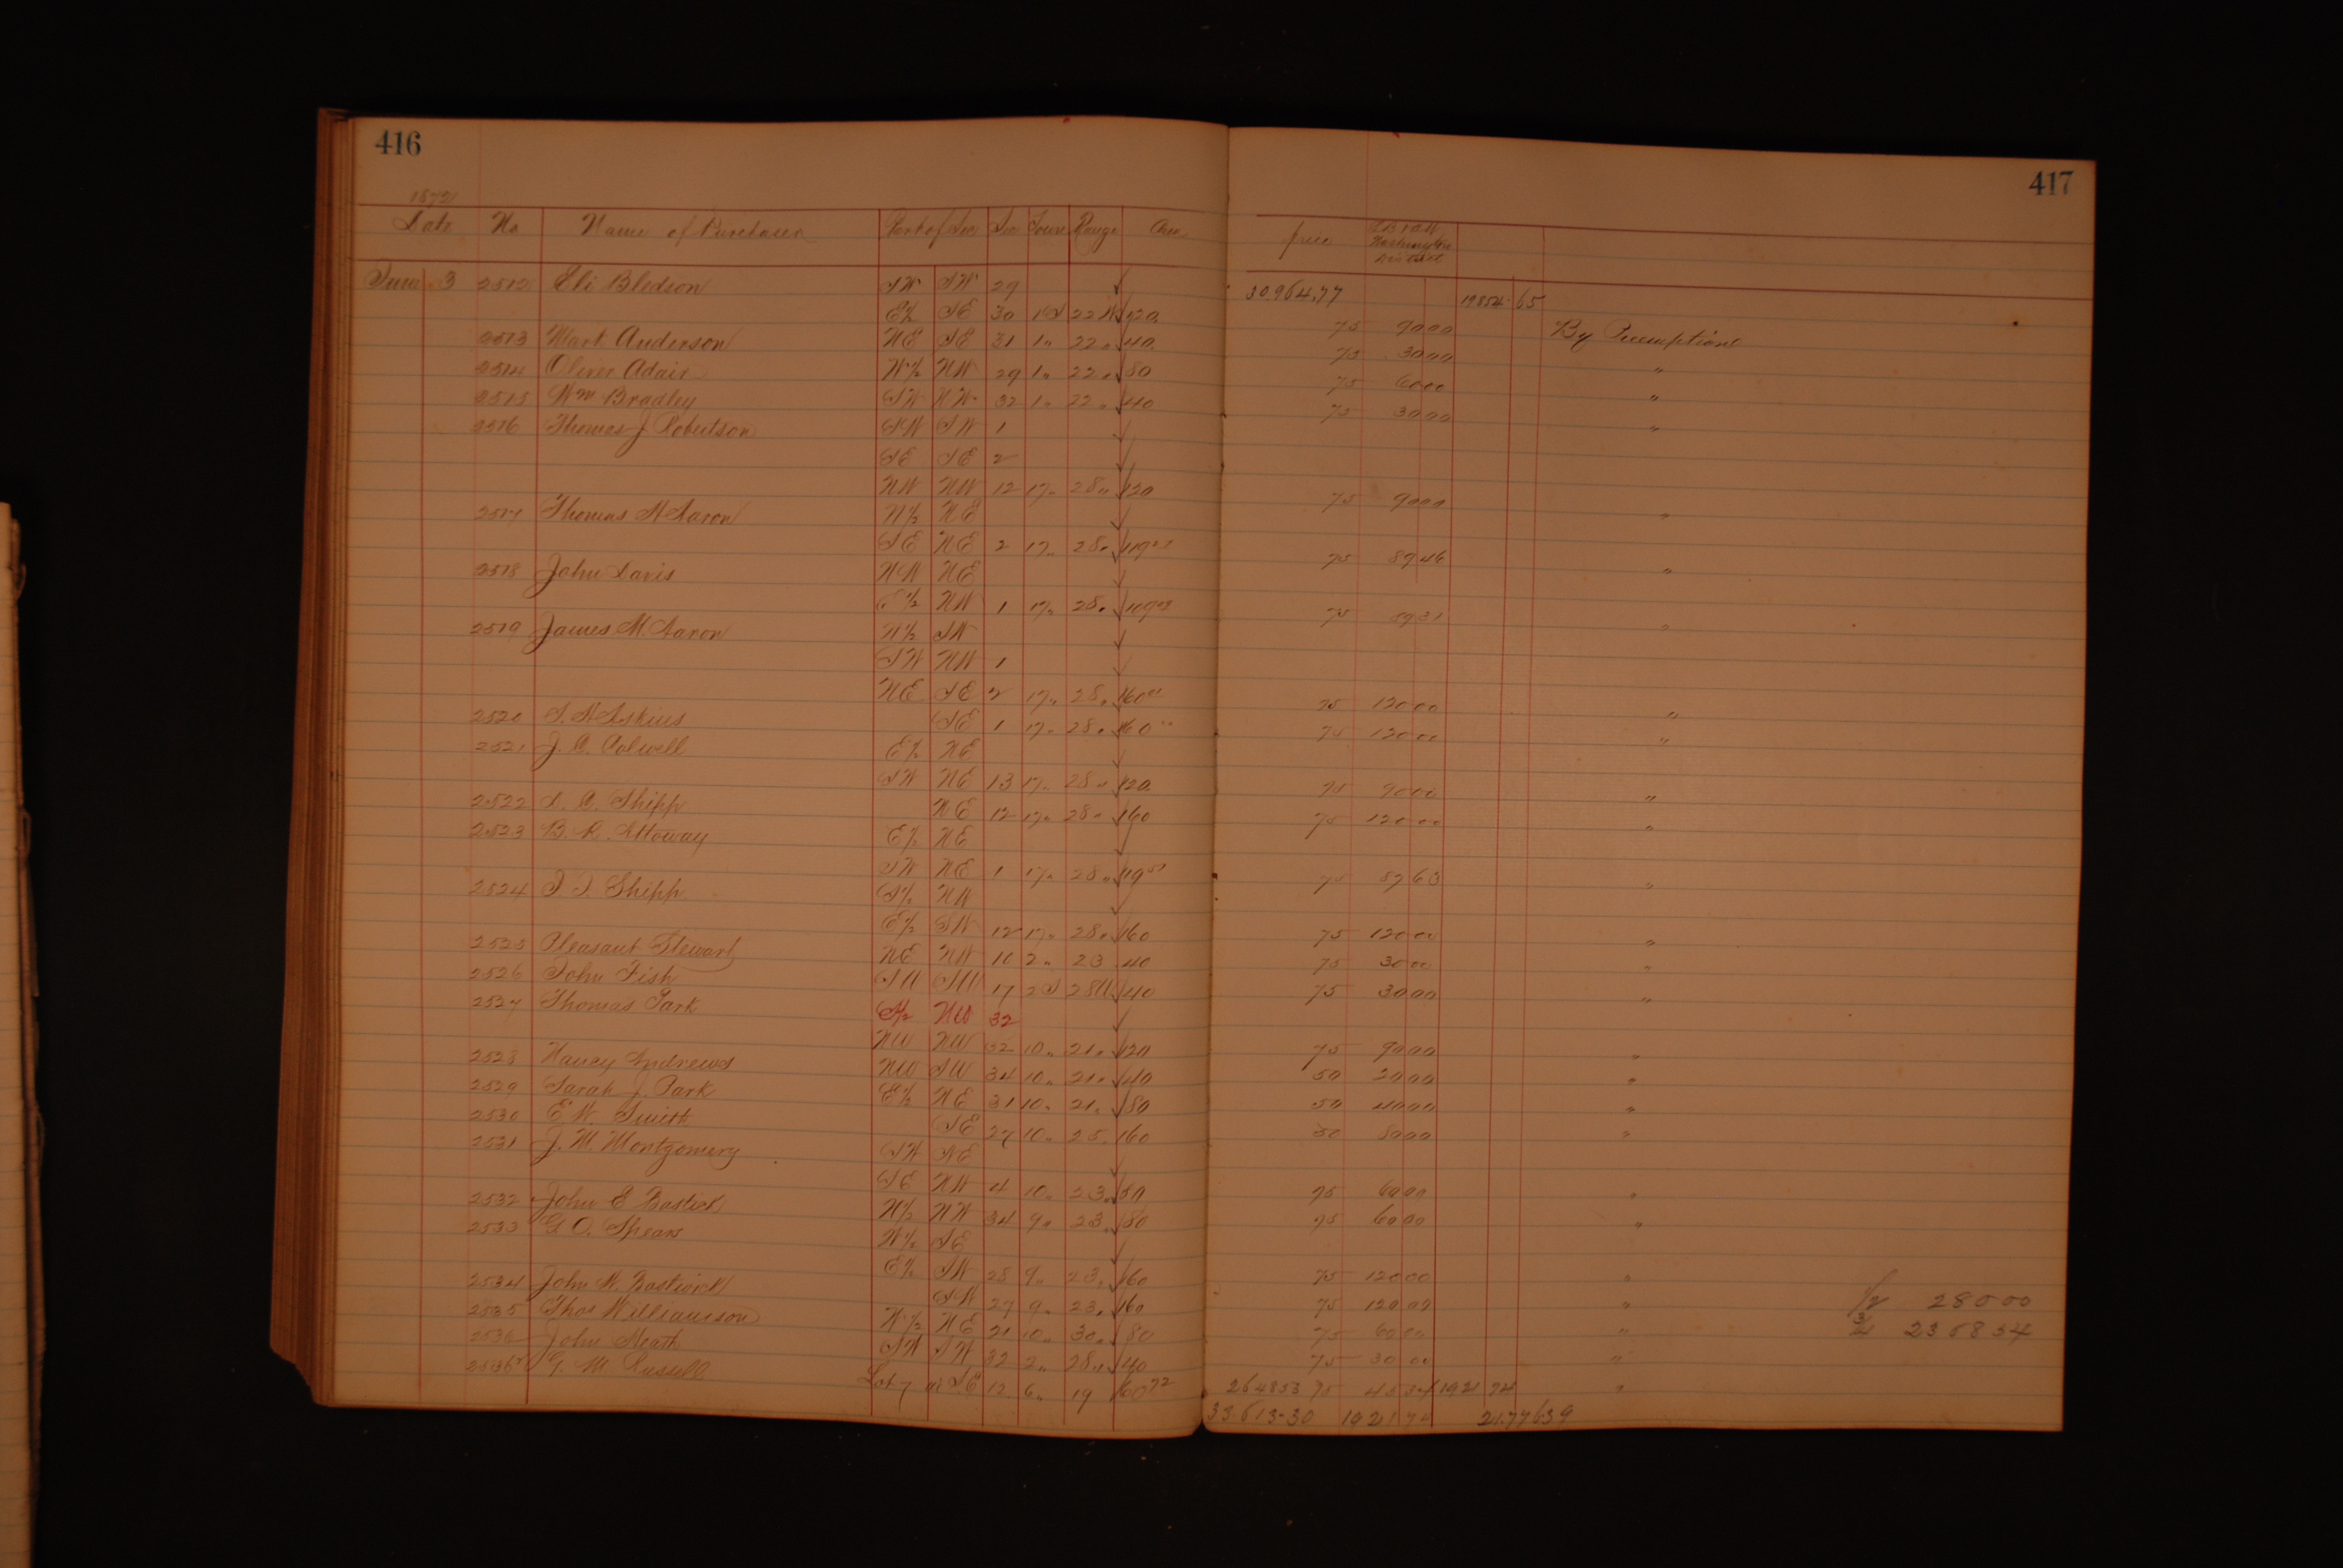 416
1872
Date No Name of Purchaser Part of Sec Sec Town Range Area
June 3 2512 Eli Bledson SW SW 29
E½ SE 30 1S 22W 120
2513 Mart Anderson NE SE 31 1 " 22 " 40
2514 Oliver Adair W½ NW 29 1 " 22 " 80
2515 Wm Bradley SW NW 32 1 " 22 " 40
2516 Thomas J Robertson SW 1
SE SE 2
NW NW 12 17 " 28 " 120
2517 Thomas H Aaron N½ NE
SE NE 2 17 " 28 "
2518 John Davis NW NE
NW 1 17 " 28 "
2519 James M. Aaron SW
SW NW 1
NE SE 2 17 " 28 " 160
2520 SE 1 17 " 28 " 160
2521 J. C. Colwell E½ NE
SW NE 13 17 " 28 " 120
2522 Shipp NE 12 17 " 28 " 160
2523 B. R. Attoway E½ NE
SW NE 1 17 " 28 "
2524 Shipp S½ NW
E½ SW 12 17 " 28 " 160
2525 Pleasant Stewart NE NW 10 2 " 23 40
2526 John Fish SW SW 17 2S 28W 40
2527 Thomas Park S½ NW 32
NW NW 32 10 " 21 " 120
2528 Nancy Andrews NW SW 34 10 " 21 " 40
2529 Sarah J. Park E½ NE 31 10 " 21 " 80
2530 E. W. Smith SE 27 10 " 25 " 160
2531 J. M. Montgomery SW NE
SE NW 4 10 " 23 " 80
2532 John E Bostick N½ NW 34 9 " 23 " 80
2533 G. O. Spears W½ SE
E½ SW 28 9 " 23 " 160
2534 John W. Bostwick SW 27 9 " 23 " 160
2535 Thos Williamson W½ NE 21 10 " 30 " 80
2536 John Heath SW SW 32 2 " 28 " 40
G. M. Russell Lot 7 SE 12 6 " 19 60 72
417
price
Washington
District
30.964.77 19854 65
75 9000 By Preemptions
75 3000 "
75 6000 "
75 3000 "
75 9000 "
75 8946 "
75 "
75 12000 "
75 12000 "
75 9000 "
75 12000 "
75 8963 "
75 12000 "
75 3000 "
75 3000 "
75 9000 "
50 2000 "
50 4000 "
50 8000 "
75 6000 "
75 6000 "
75 12000 "
75 12000 " 1/2 280 00
75 6000 " 3/4 2368 54
75 3000 "
2648 53 75 45 54 1921 74 "
33.613-30 1921 74 21.776 39